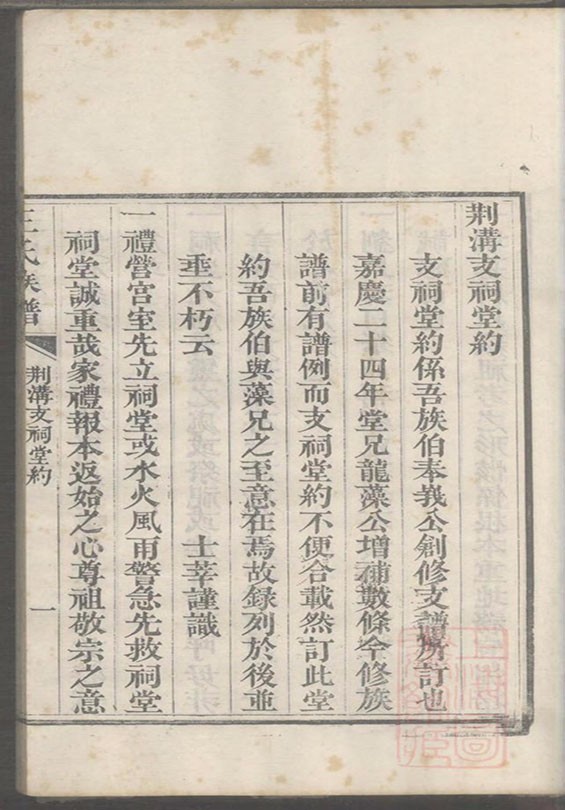 荆溝支祠堂約
支祠堂約係吾族伯奉義公創修支譜所訂也
嘉慶二十四年堂兄龍藻公增補數條今修族
譜前有譜例而支祠堂約不便合載然訂此堂
約吾族伯與藻兄之至意在焉故録列於後並
垂不朽云 士莘謹識
一禮營宫室先立祠堂或水火風雨警急先救祠堂
祠堂誠重哉家禮報本返始之心尊祖敬宗之意
王氏族譜 荆溝支祠堂約 一